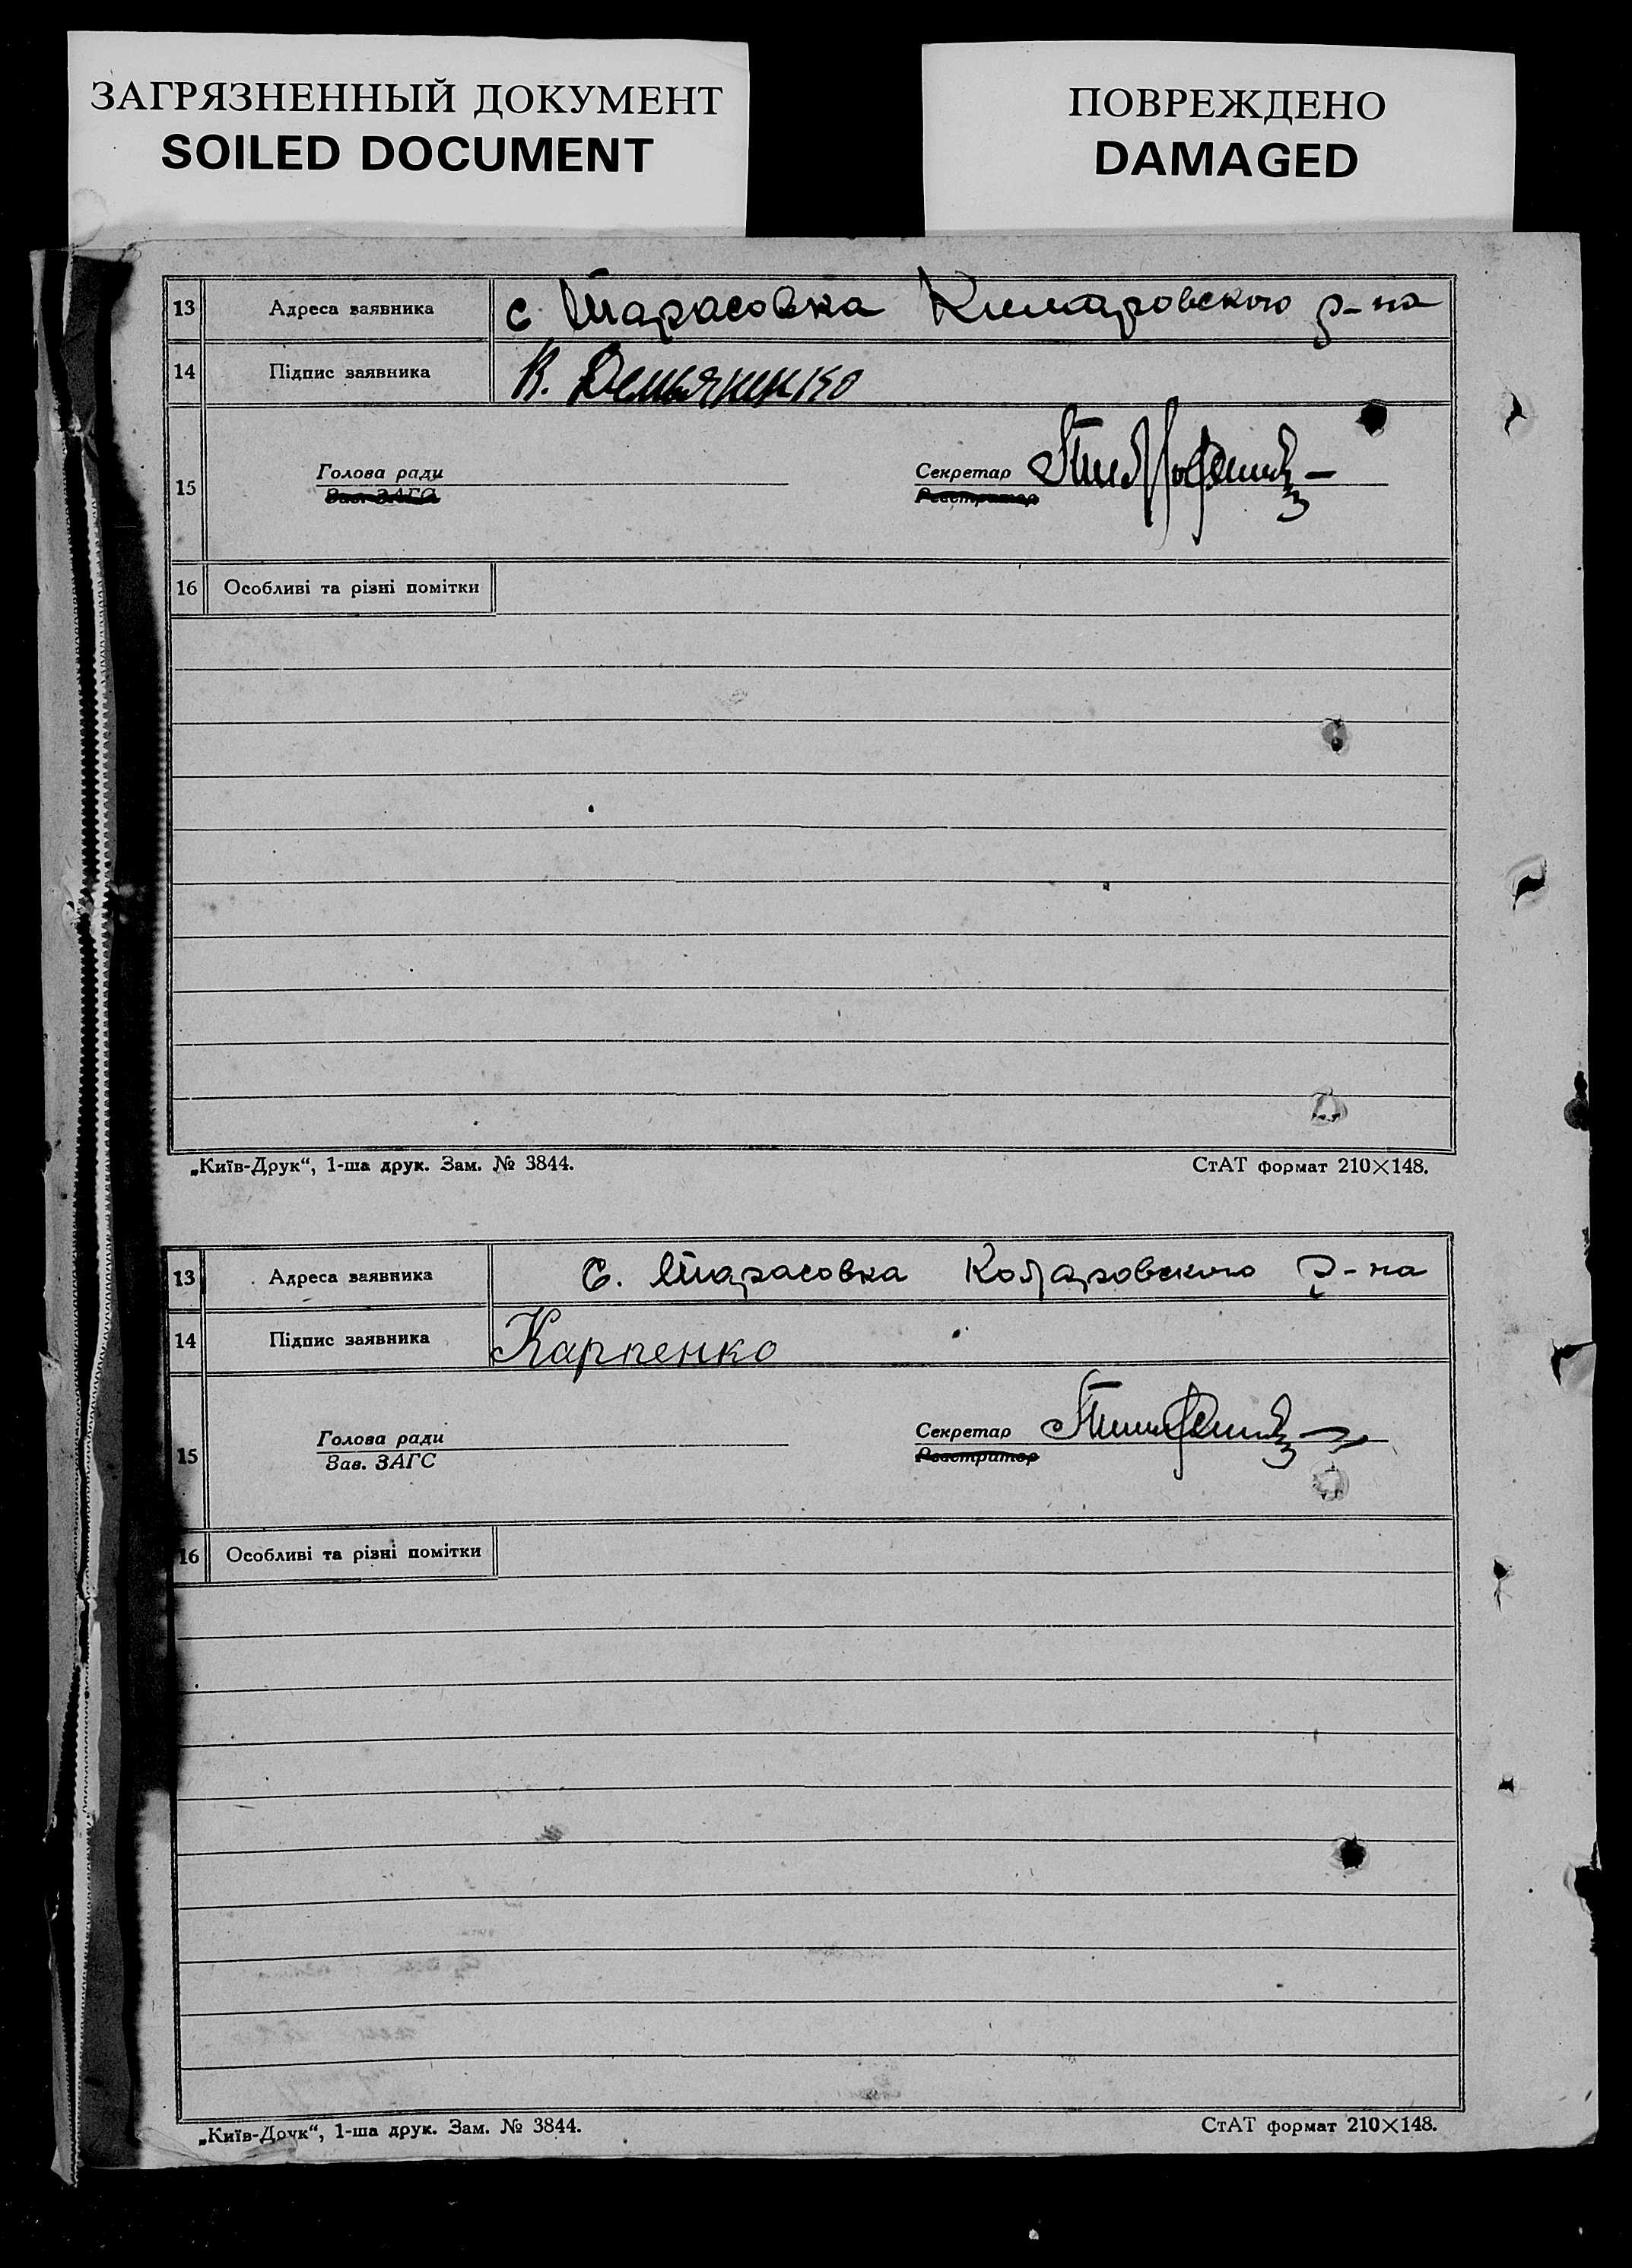 ЗАГРЯЗНЕННЫЙ ДОКУМЕНТ
SOILED DOCUMENT
ПОВРЕЖДЕНО
DAMAGED
13 Адреса заявника с Тарасовка р-на
14 Підпис заявника В. Демьяненко
15 Голова ради Секретар
Зав. ЗАГС Реєстратор
16 Особливі та різні помітки
„Київ-Друк“, 1-ша друк. Зам. № 3844. СтАТ формат 210×148.
13 Адреса заявника С. Тарасовка р-на
14 Підпис заявника Карпенко
15 Голова ради Секретар
Зав. ЗАГС Реєстратор
16 Особливі та різні помітки
„Київ-Друк“, 1-ша друк. Зам. № 3844. СтАТ формат 210×148.